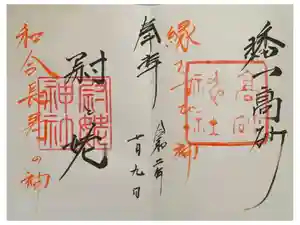 高砂
縁むすびの神
高砂神社
奉拝
令和二年
十月九日
尉と姥
尉姥神社
和合長寿の神